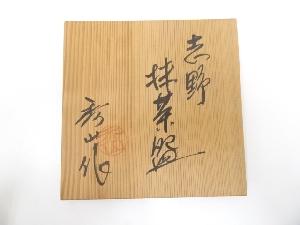 志野
抹茶盌
秀山作